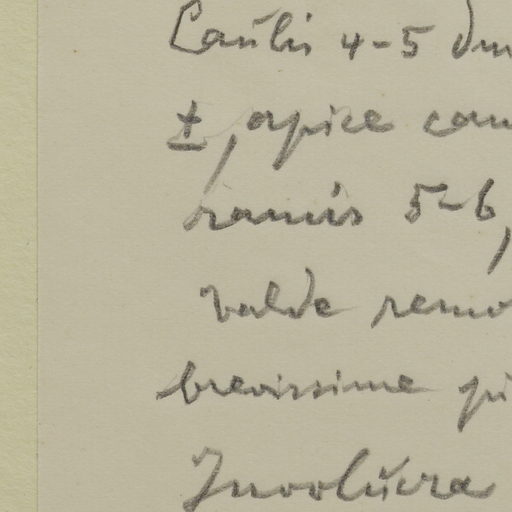 Caulis 4-5 dm
±, apice cau
ramis 5-6,
valde remo
brevissime pi
Involucra